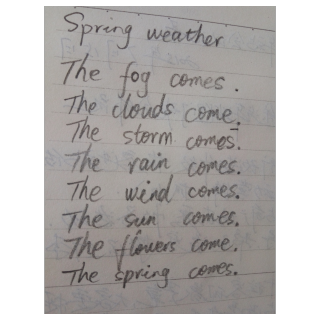 Spring weather
The fog comes.
The clouds come.
The storm comes.
The rain comes.
The wind comes.
The sun comes.
The flowers come.
The spring comes.